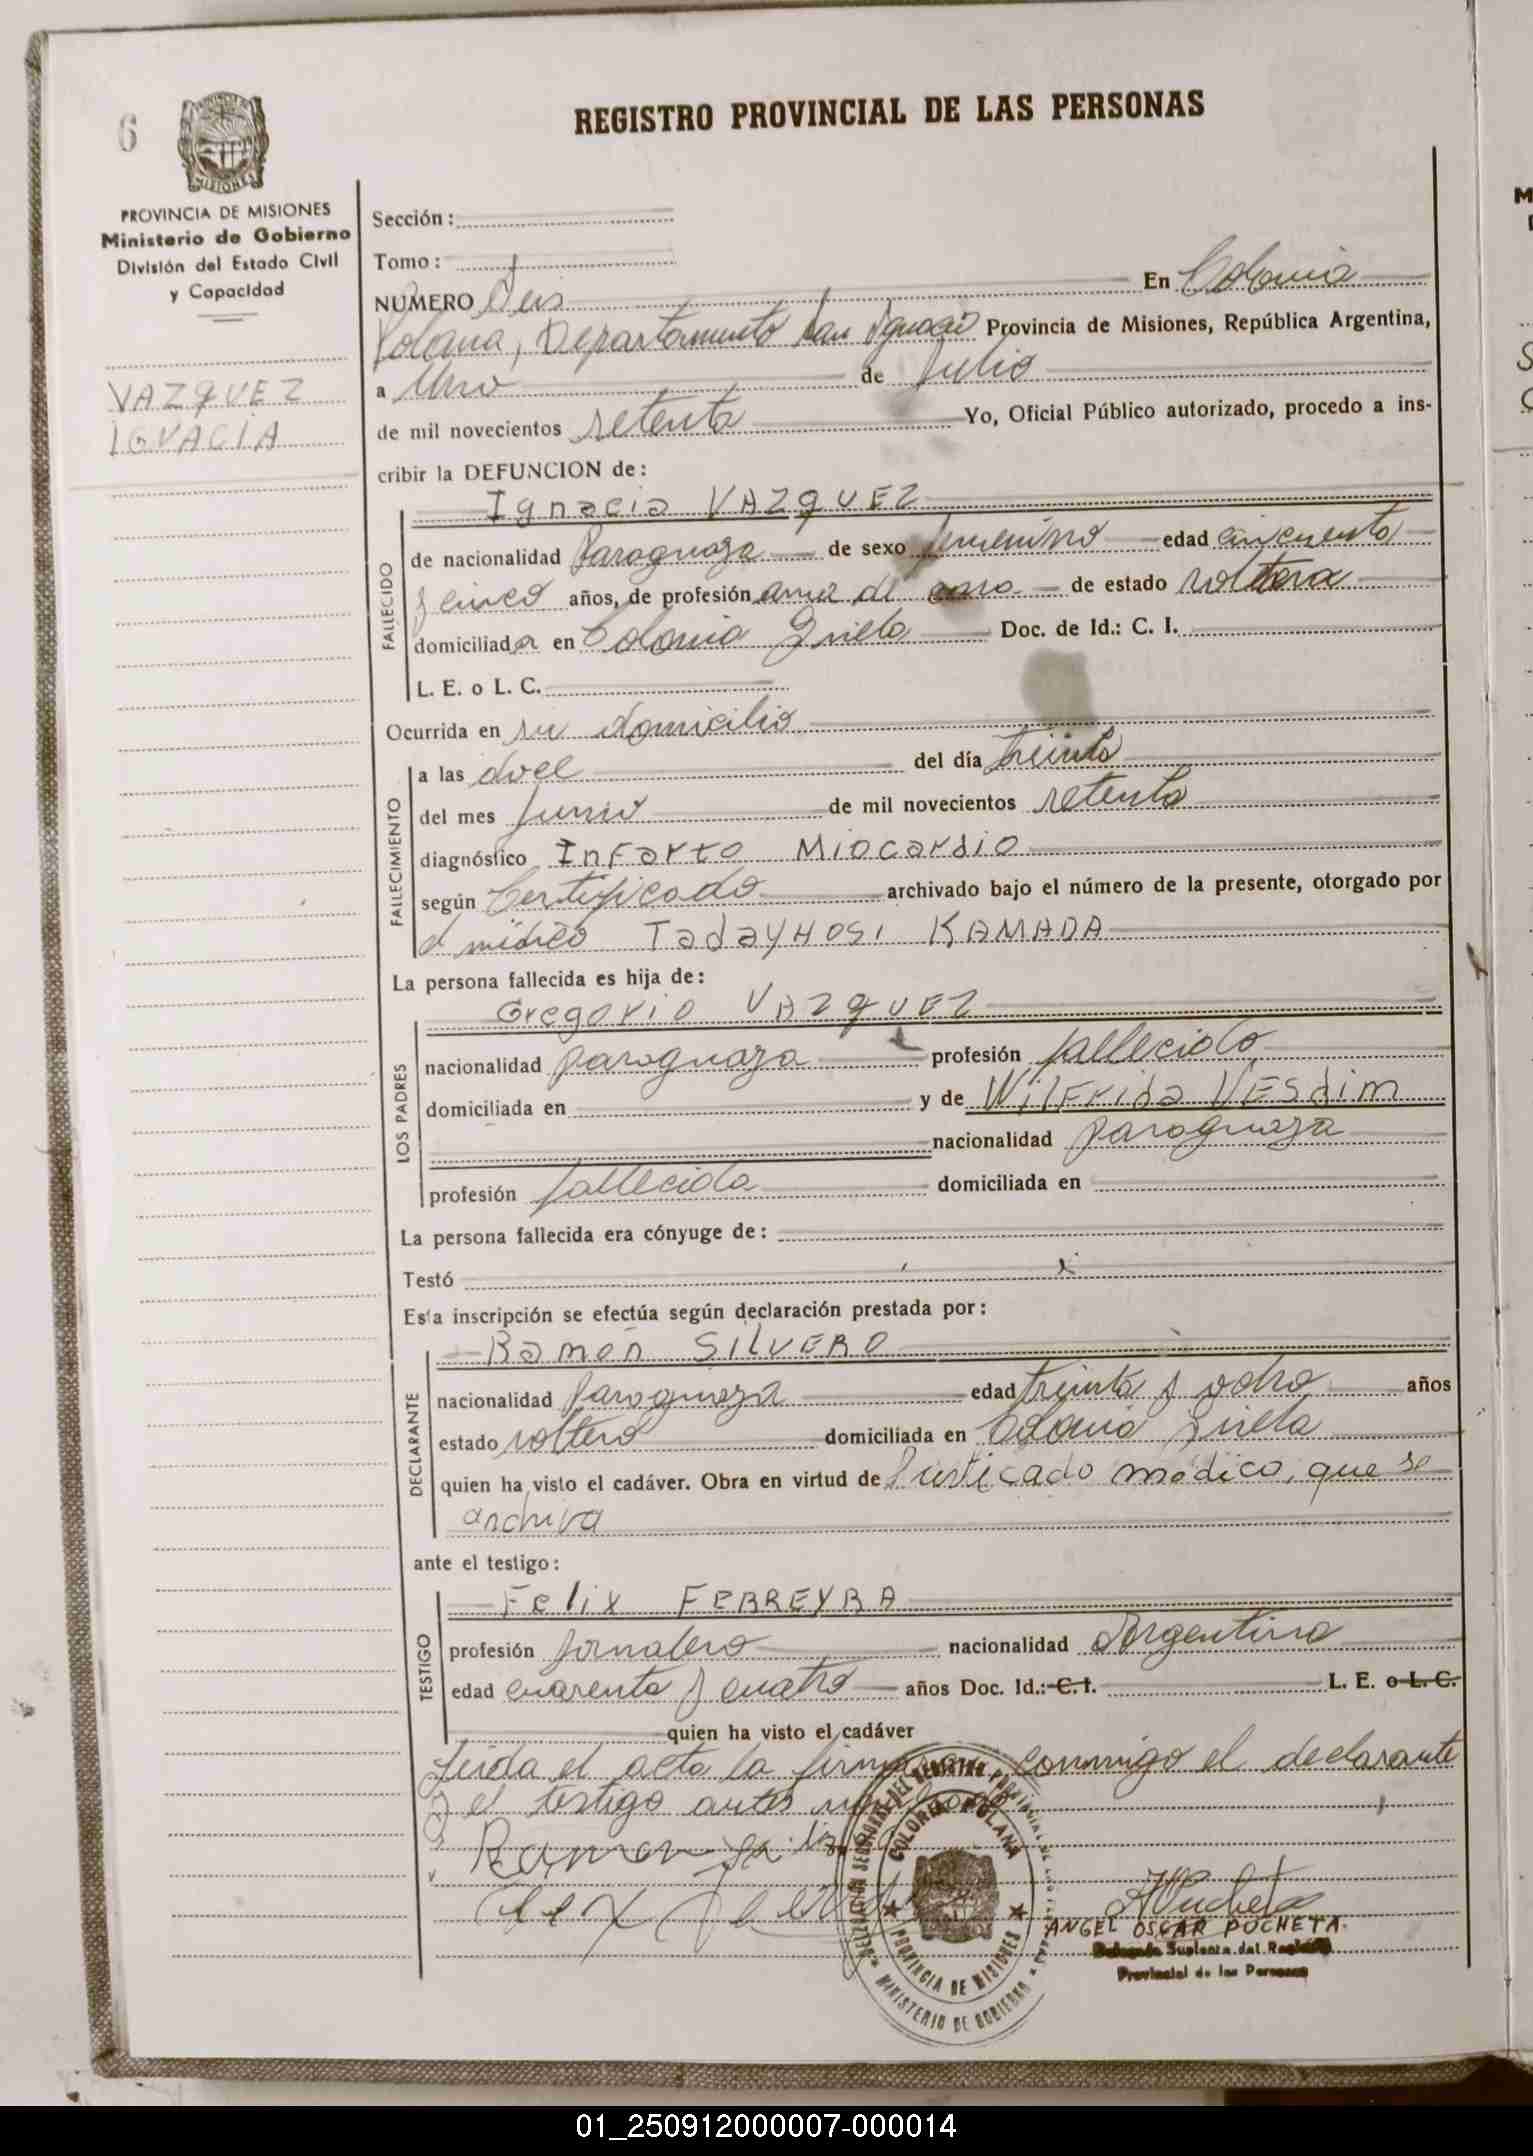 6
REGISTRO PROVINCIAL DE LAS PERSONAS
MISIONES
PROVINCIA DE MISIONES
Ministerio de Gobierno
División del Estado Civil
y Capacidad
VAZQUEZ
IGNACIA
Sección:
Tomo:
NUMERO Seis En Colonia
Polana, Departamento San Ignacio Provincia de Misiones, República Argentina,
a Uno de Julio
de mil novecientos setenta Yo, Oficial Público autorizado, procedo a ins-
cribir la DEFUNCION de:
Ignacia VAZQUEZ
FALLECIDO
de nacionalidad Paraguaya de sexo femenino edad cincuenta
y cinco años, de profesión ama de casa de estado soltera
domiciliada en Colonia Doc. de Id.: C. I.
L. E. o L. C.
Ocurrida en su domicilio
FALLECIMIENTO
a las doce del día treinta
del mes Junio de mil novecientos setenta
diagnóstico Infarto Miocardio
según Certificado archivado bajo el número de la presente, otorgado por
el médico TadayHosi KAMADA
La persona fallecida es hija de:
Gregorio VAZQUEZ
LOS PADRES
nacionalidad paraguaya profesión fallecido
domiciliada en y de Wilfrida VESdim
nacionalidad paraguaya
profesión fallecida domiciliada en
La persona fallecida era cónyuge de:
Testó
Esta inscripción se efectúa según declaración prestada por:
Ramón SILVERO
DECLARANTE
nacionalidad Paraguaya edad treinta y ocho años
estado soltero domiciliada en Colonia
quien ha visto el cadáver. Obra en virtud de médico, que se
archiva
ante el testigo:
Felix FERREYRA
TESTIGO
profesión Jornalero nacionalidad Argentina
edad cuarenta y cuatro años Doc. Id.: C. I. L. E. o L. C.
quien ha visto el cadáver
Leida el acta la firmaron conmigo el declarante
y el testigo antes nombrado
Ramon
COLONIA POLANA
PROVINCIA DE MISIONES
MINISTERIO DE GOBIERNO
ANGEL OSCAR PUCHETA.
Delegado Suplente del Registro
Provincial de las Personas
01_250912000007-000014